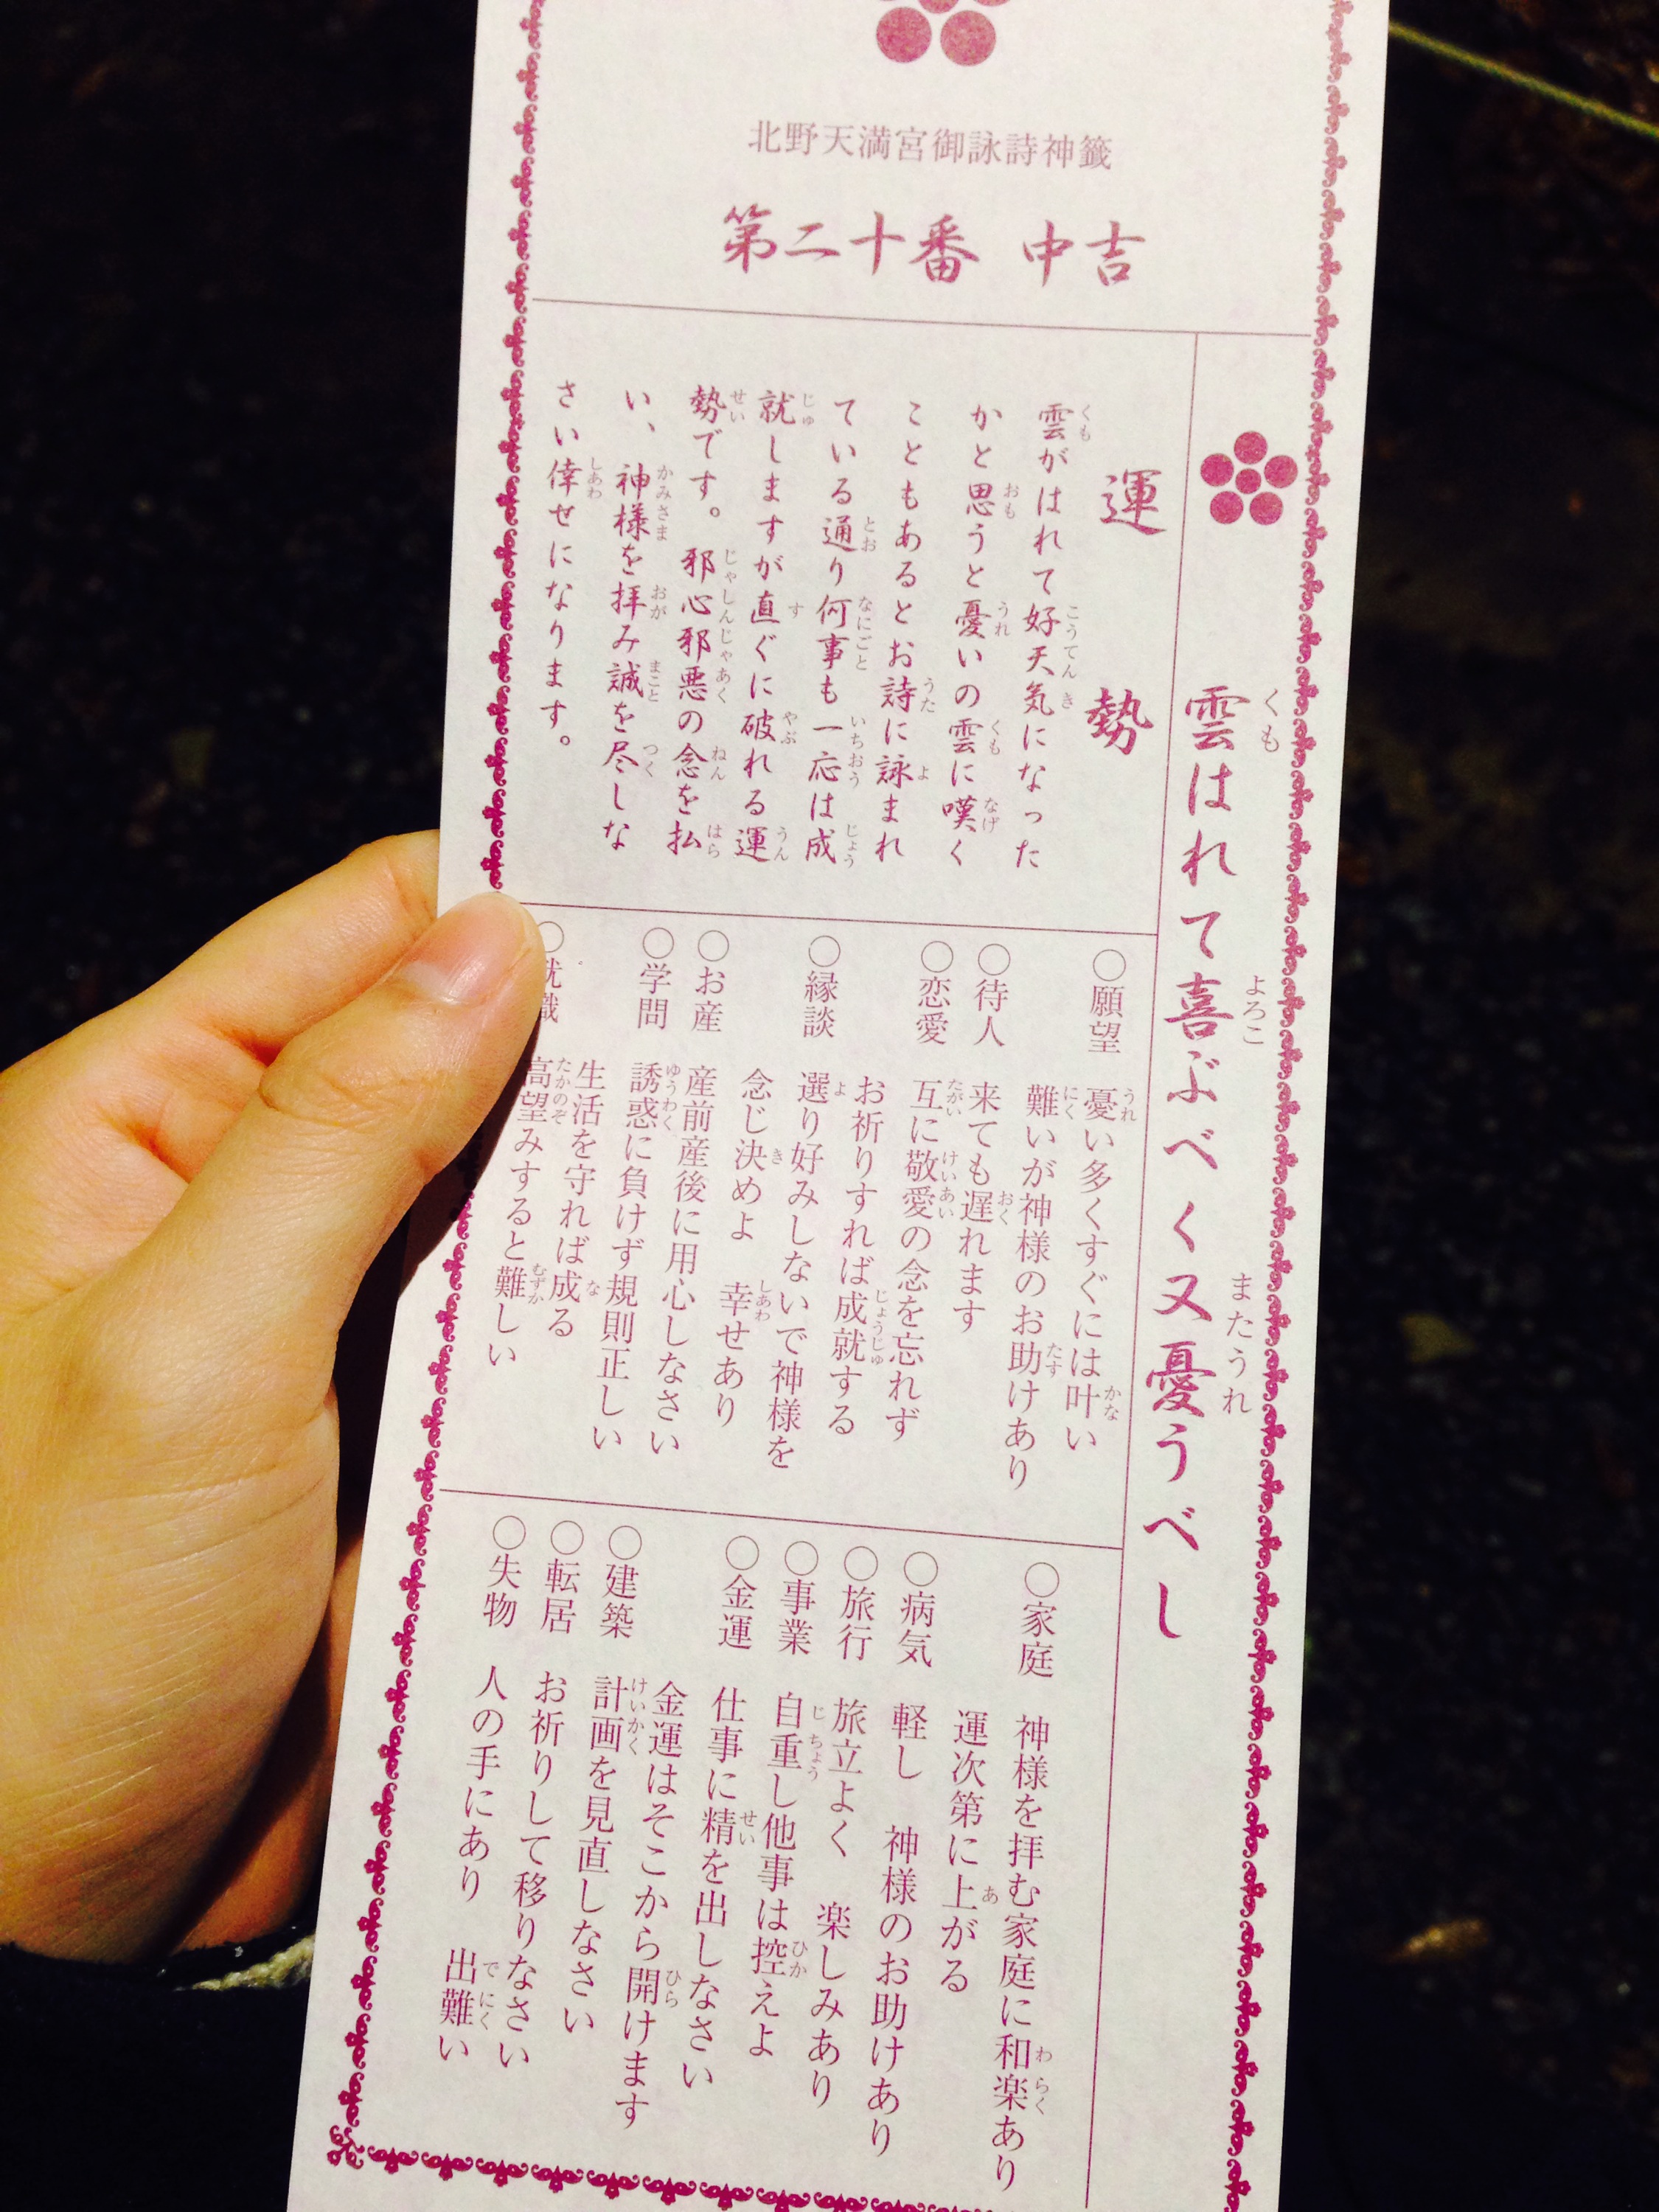 北野天満宮御詠詩神籤
第二十番 中吉
雲はれて喜ぶべく又憂うべし
運勢
雲がはれて好天気になった
かと思うと憂いの雲に嘆く
こともあるとお詩に詠まれ
ている通り何事も一応は成
就しますが直ぐに破れる運
勢です。邪心邪悪の念を払
い、神様を拝み誠を尽しな
さい倖せになります。
○願望 憂い多くすぐには叶い
難いが神様のお助けあり
○待人 来ても遅れます
○恋愛 互に敬愛の念を忘れず
お祈りすれば成就する
○縁談 選り好みしないで神様を
念じ決めよ 幸せあり
○お産 産前産後に用心しなさい
○学問 誘惑に負けず規則正しい
生活を守れば成る
○就職 高望みすると難しい
○家庭 神様を拝む家庭に和楽あり
運次第に上がる
○病気 軽し 神様のお助けあり
○旅行 旅立よく 楽しみあり
○事業 自重し他事は控えよ
○金運 仕事に精を出しなさい
金運はそこから開けます
○建築 計画を見直しなさい
○転居 お祈りして移りなさい
○失物 人の手にあり 出難い